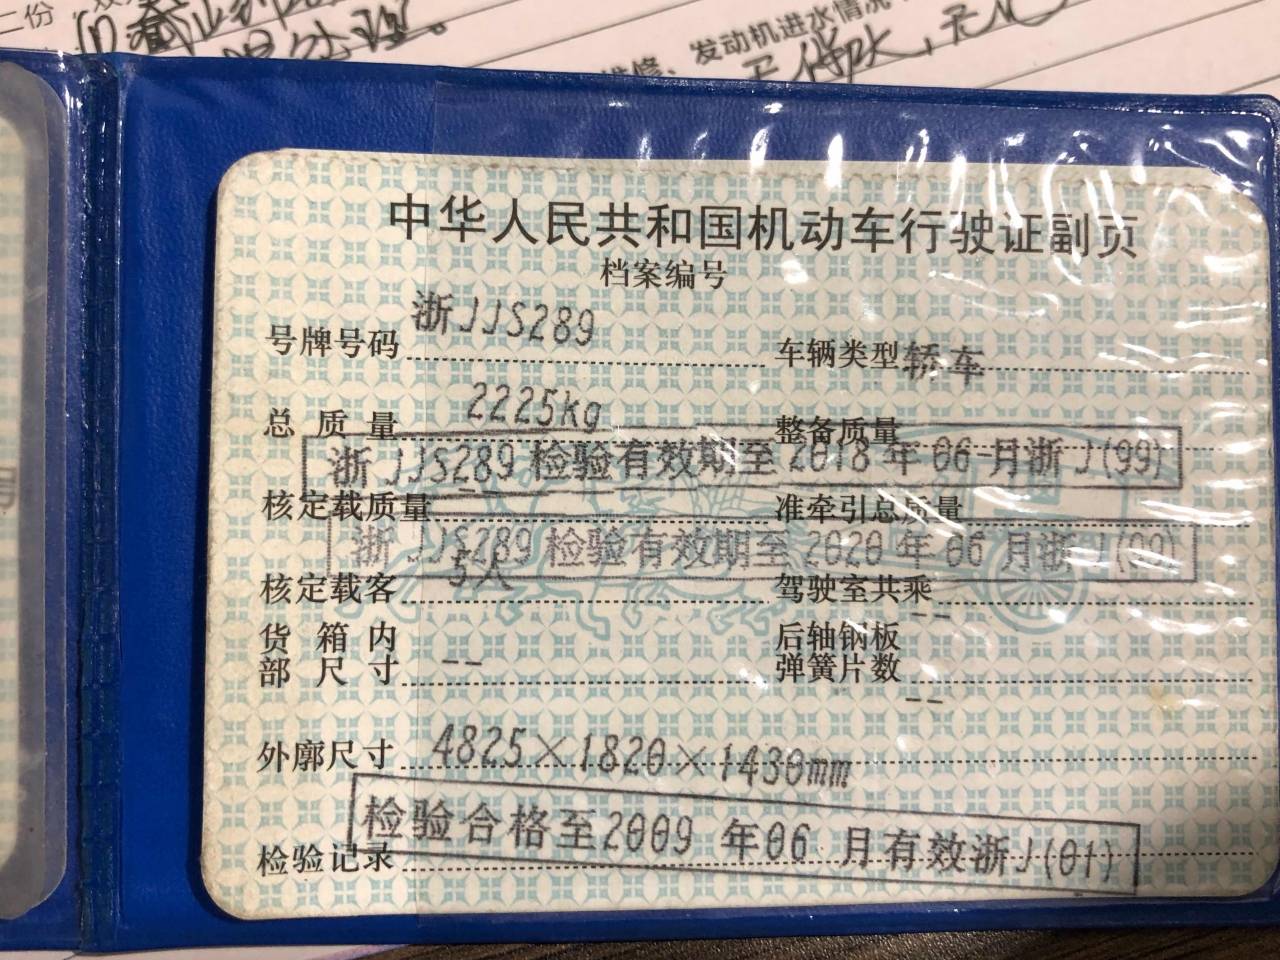 二份
处理。
维修、发动机进水情况
中华人民共和国机动车行驶证副页
档案编号
号牌号码 浙JJS289 车辆类型 轿车
总质量 2225kg 整备质量
浙JJS289 检验有效期至 2018 年 06 月浙 J(99)
核定载质量 -- 准牵引总质量
浙JJS289 检验有效期至 2020 年 06 月浙 J(99)
核定载客 5人 驾驶室共乘 --
货箱内 后轴钢板
部尺寸 -- 弹簧片数 --
外廓尺寸 4825×1820×1430mm
检验合格至2009 年06 月有效浙J(01)
检验记录